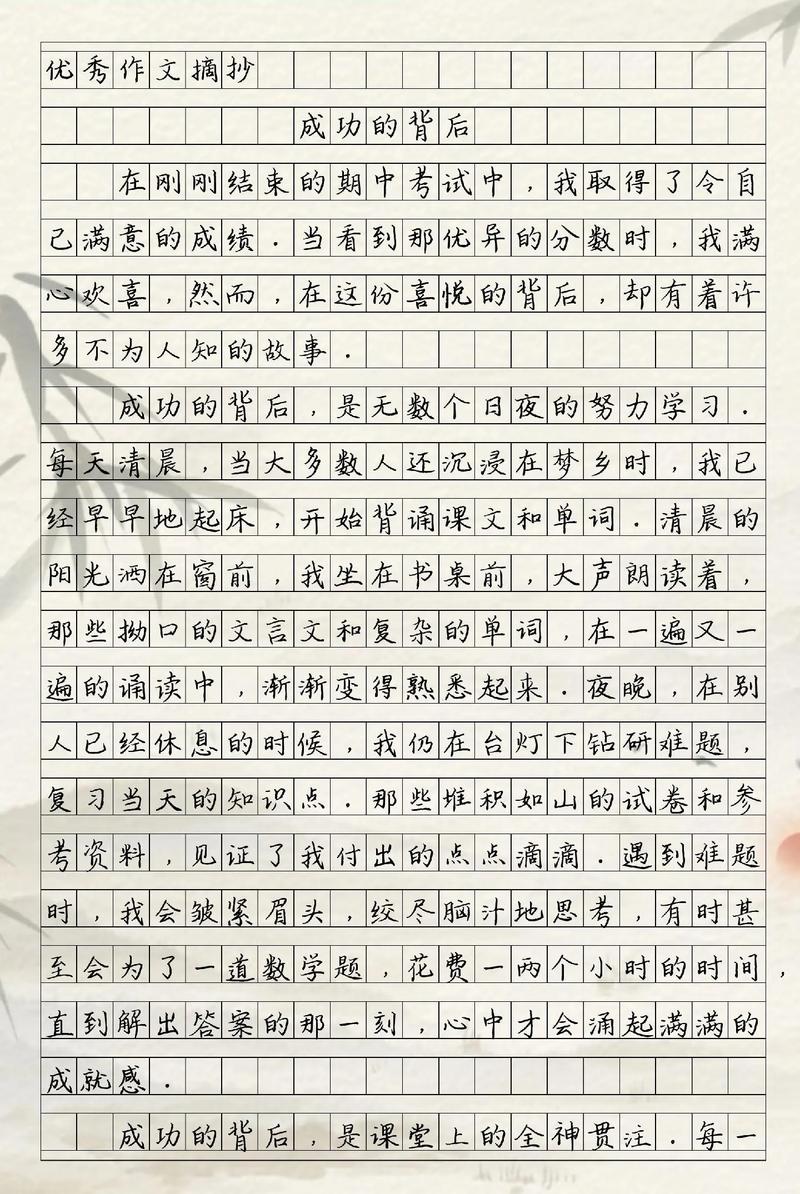 优秀作文摘抄
成功的背后
在刚刚结束的期中考试中，我取得了令自
己满意的成绩．当看到那优异的分数时，我满
心欢喜，然而，在这份喜悦的背后，却有着许
多不为人知的故事．
成功的背后，是无数个日夜的努力学习．
每天清晨，当大多数人还沉浸在梦乡时，我已
经早早地起床，开始背诵课文和单词．清晨的
阳光洒在窗前，我坐在书桌前，大声朗读着，
那些拗口的文言文和复杂的单词，在一遍又一
遍的诵读中，渐渐变得熟悉起来．夜晚，在别
人已经休息的时候，我仍在台灯下钻研难题，
复习当天的知识点．那些堆积如山的试卷和参
考资料，见证了我付出的点点滴滴．遇到难题
时，我会皱紧眉头，绞尽脑汁地思考，有时甚
至会为了一道数学题，花费一两个小时的时间，
直到解出答案的那一刻，心中才会涌起满满的
成就感．
成功的背后，是课堂上的全神贯注．每一